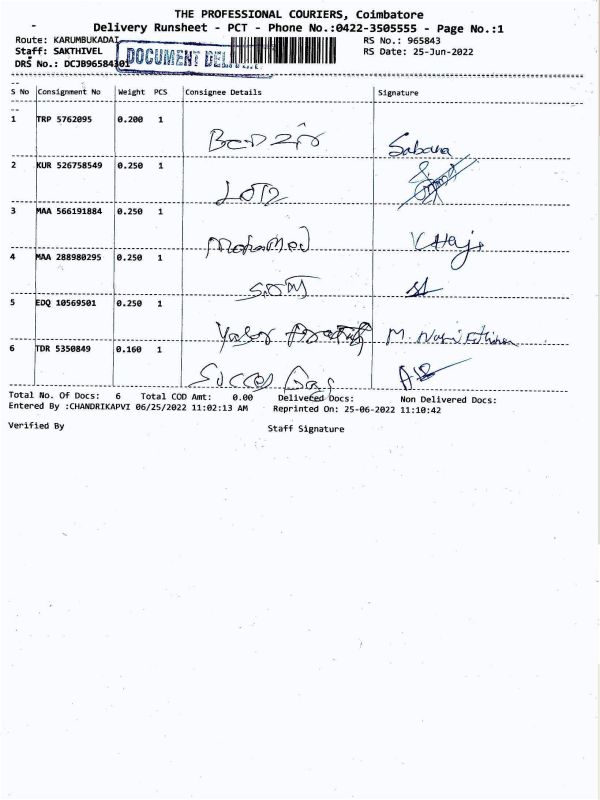 THE PROFESSIONAL COURIERS, Coimbatore
Delivery Runsheet - PCT - Phone No.:0422-3505555 - Page No.:1
Route: KARUMBUKADAI RS No.: 965843
Staff: SAKTHIVEL DOCUMENT RS Date: 25-Jun-2022
DRS No.: DCJB96584301
S No Consignment No Weight PCS Consignee Details Signature
1 TRP 5762095 0.200 1
Sabana
2 KUR 526758549 0.250 1
3 MAA 566191884 0.250 1
Mohamed
4 MAA 288980295 0.250 1
5 EDQ 10569501 0.250 1
6 TDR 5350849 0.160 1
Total No. Of Docs: 6 Total COD Amt: 0.00 Delivered Docs: Non Delivered Docs:
Entered By :CHANDRIKAPVI 06/25/2022 11:02:13 AM Reprinted On: 25-06-2022 11:10:42
Verified By Staff Signature